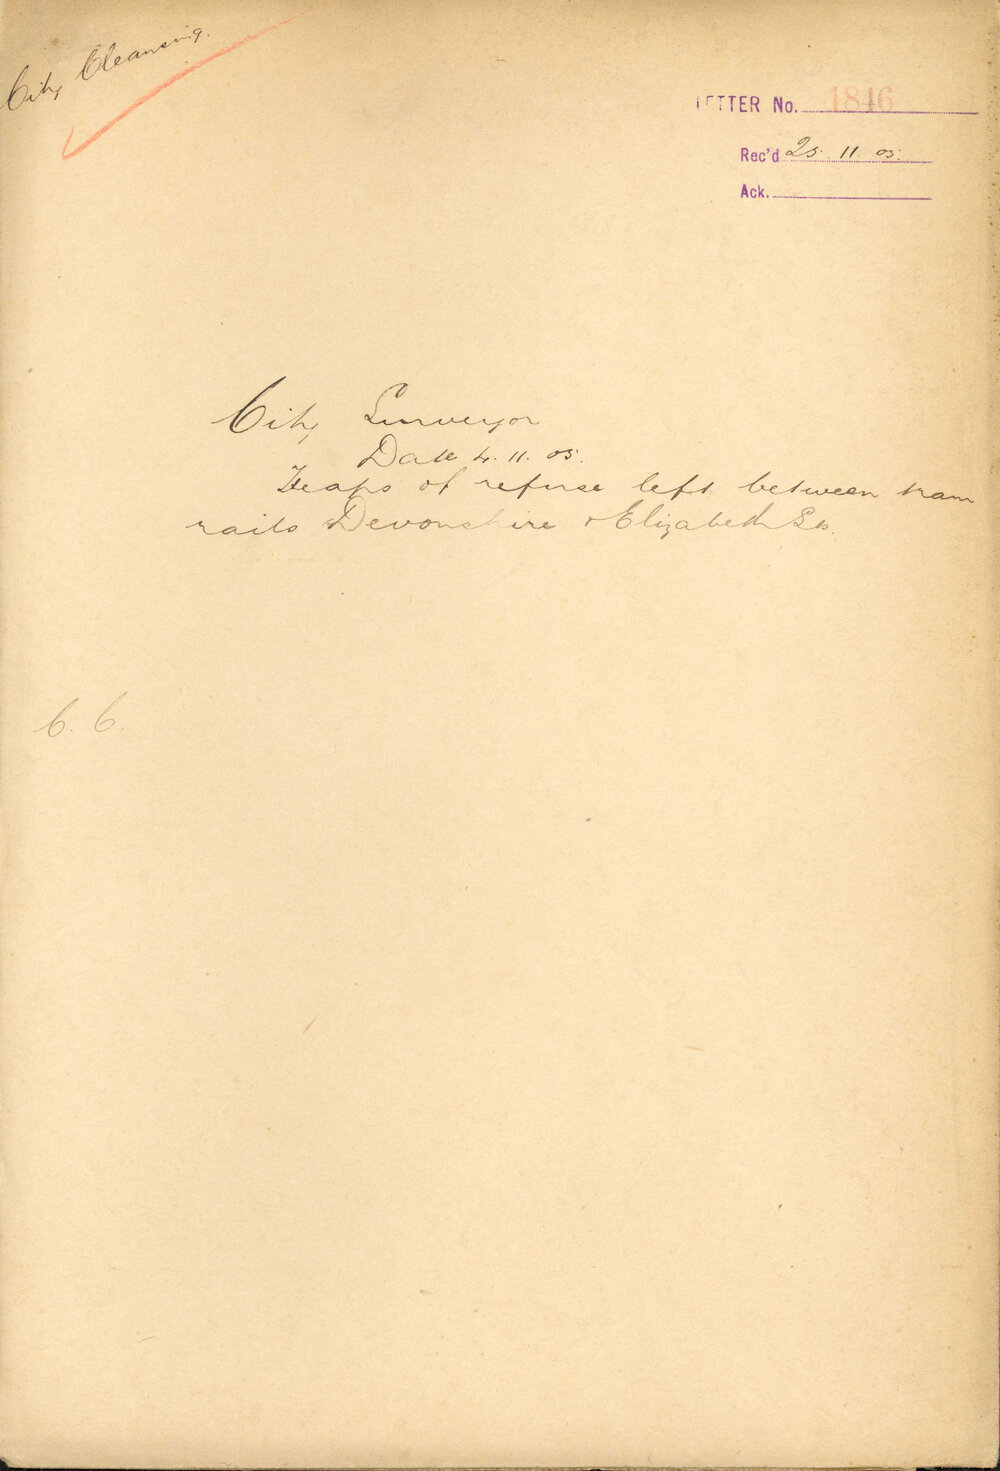 City Cleansing.
LETTER No. 1846
Rec'd 25. 11. 05.
Ack.
City Surveyor
Date 4. 11. 05.
Heaps of refuse left between tram
rails Devonshire & Elizabeth Sts.
C. C.